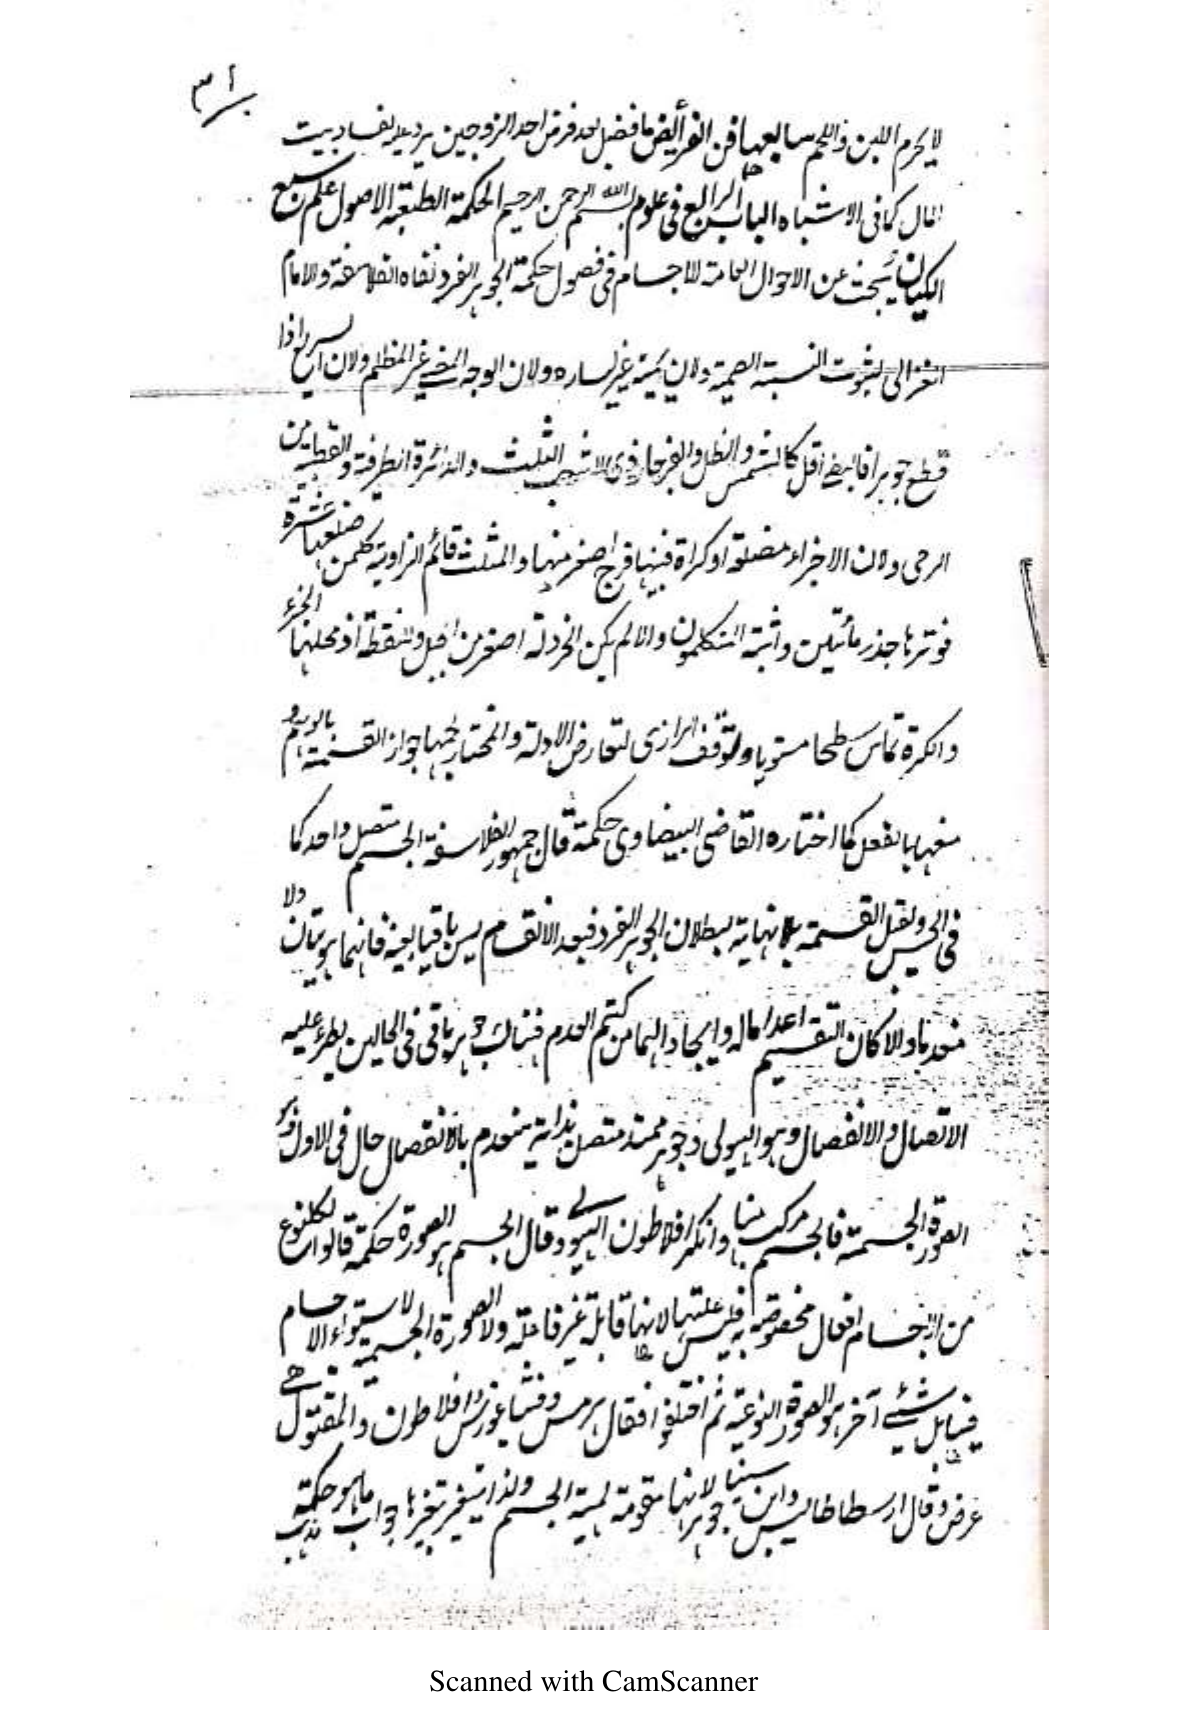 ٣١
لا يحرم اللبن واللحم سابعها فن الفرائض ما فضل بعد فرض احد الزوجين يرد عليه لفساد بيت
المال كما فى الاشباه الباب الرابع فى علوم بسم الله الرحمن الرحيم الحكمة الطبعية الاصول علم سمع
الكيان يبحث عن الاحوال العامة للاجسام فى فصول حكمة الجوهر الفرد نفاه الفلاسفة والامام
الغزالى لثبوت النسبة الصمية ولان يمينه غير يساره ولان الوجه المضئ غير المظلم ولان السريع اذا
قطع جوهرا فالبطئ اقل كالشمس والظل والفرجار ذى الشعب الثلث والدائرة الطرفية والقطبية من
الرحى ولان الاجزاء مضلعة او كراة فبينها فرج اصغر منها والمثلث قائم الزاوية كل من ضلعيها عشرة
فوترها جذر مأتين واثبته المتكلمون والا لم يكن الخردلة اصغر من الجبل وللنقطة اذ محلها الجزء
والكرة تماس سطحا مستويا وتوقف الرازى لتعارض الادلة والمختار جمها جواز القسمة بالوهم و
منعها بالفعل كما اختاره القاضى البيضاوى حكمة قال جمهور الفلاسفة الجسم متصل واحد كما
فى الحس ويقبل القسمة بلا نهاية لبطلان الجوهر الفرد فبعد الانقسام ليس باقيا بعينه فانهما هويتان ولا
منعدما والا كان التقسيم اعداما له وايجادا لهما من كتم العدم فهناك جوهر باقى فى الحالين يطرء عليه
الاتصال والانفصال وهو الهيولى وجوهر ممتد متصل بذاته ينعدم بالانفصال حال فى الاول وهو
الصورة الجسمية فالجسم مركب منهما وانكر افلاطون الهيولى وقال الجسم هو الصورة حكمة قالوا لكل نوع
من الاجسام افعال مخصوصة به فليس علتها الهيولى لانها قابلة غير فاعلة ولا الصورة الجسمية لاستواء الاجسام
فيها بل شئ آخر هو الصورة النوعية ثم اختلفوا فقال هرمس وفيثاغورس وافلاطون والمقتول هى
عرض وقال ارسطاطاليس وابن سينا جوهر لانها مقومة للجسم ولذا يتغير بتغيرها جواب ما هو حكمة مذهب
Scanned with CamScanner